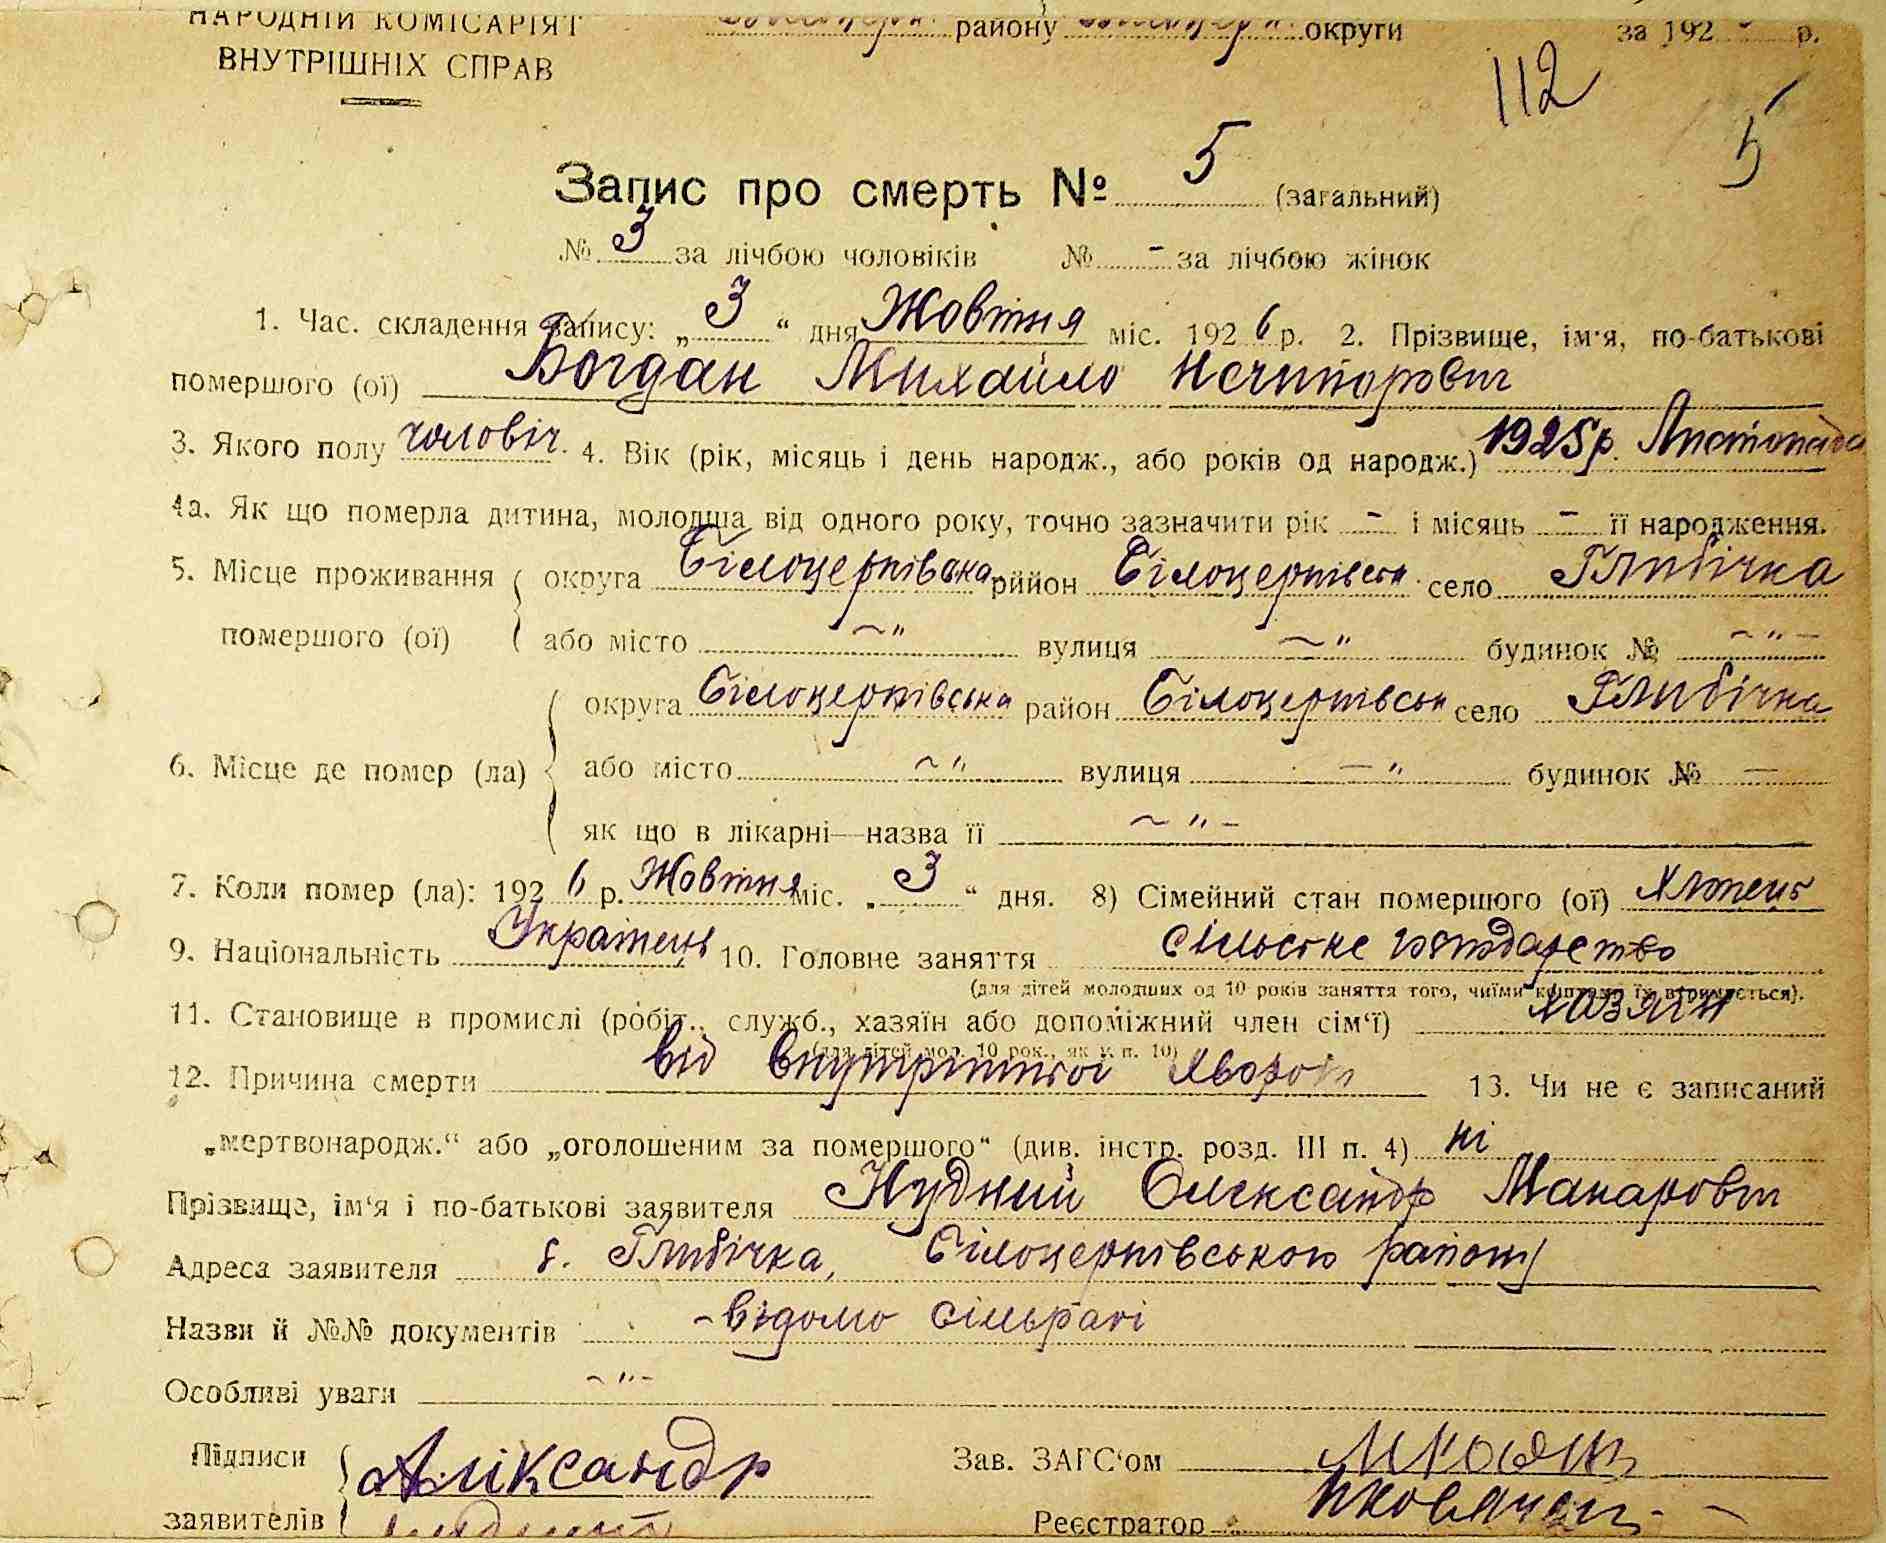 НАРОДНІЙ КОМІСАРІЯТ району округи за 192 р.
ВНУТРІШНІХ СПРАВ
112
5
Запис про смерть № 5 (загальний)
№ 3 за лічбою чоловіків № - за лічбою жінок
1. Час. складення запису: „ 3 “ дня Жовтня міс. 192 6 р. 2. Прізвище, ім'я, по-батькові
помершого (ої) Богдан Михайло Нечипорович
3. Якого полу чоловіч. 4. Вік (рік, місяць і день народж., або років од народж.) 1925 р. Листопада
4а. Як що померла дитина, молодша від одного року, точно зазначити рік - і місяць - її народження.
5. Місце проживання округа Білоцерківська рййон Білоцерківськ. село Глибічка
помершого (ої) або місто ~ " вулиця ~ " будинок № ~ " -
округа Білоцерківська район Білоцерківськ село Глибічка
6. Місце де помер (ла) або місто ~ " вулиця — " будинок № —
як що в лікарні—назва її ~ " -
7. Коли помер (ла): 192 6 р. Жовтня міс. „ 3 “ дня. 8) Сімейний стан помершого (ої) Хлопець
9. Національність Українець 10. Головне заняття сільське господарство
(для дітей молодших од 10 років заняття того, чиїми коштами їх втримується).
11. Становище в промислі (робіт., служб., хазяїн або допоміжний член сім'ї) хазяїн
(для дітей мол. 10 рок., як у п. 10)
12. Причина смерти від внутрішньої хвороби 13. Чи не є записаний
„мертвонародж.“ або „оголошеним за помершого“ (див. інстр. розд. III п. 4) ні
Прізвище, ім'я і по-батькові заявителя Нудний Олександр Макарович
Адреса заявителя с. Глибічка, Білоцерківського району
Назви й №№ документів - відомо сільраді
Особливі уваги ~ " -
Підписи Аліксандр Зав. ЗАГС'ом
заявителів Реєстратор